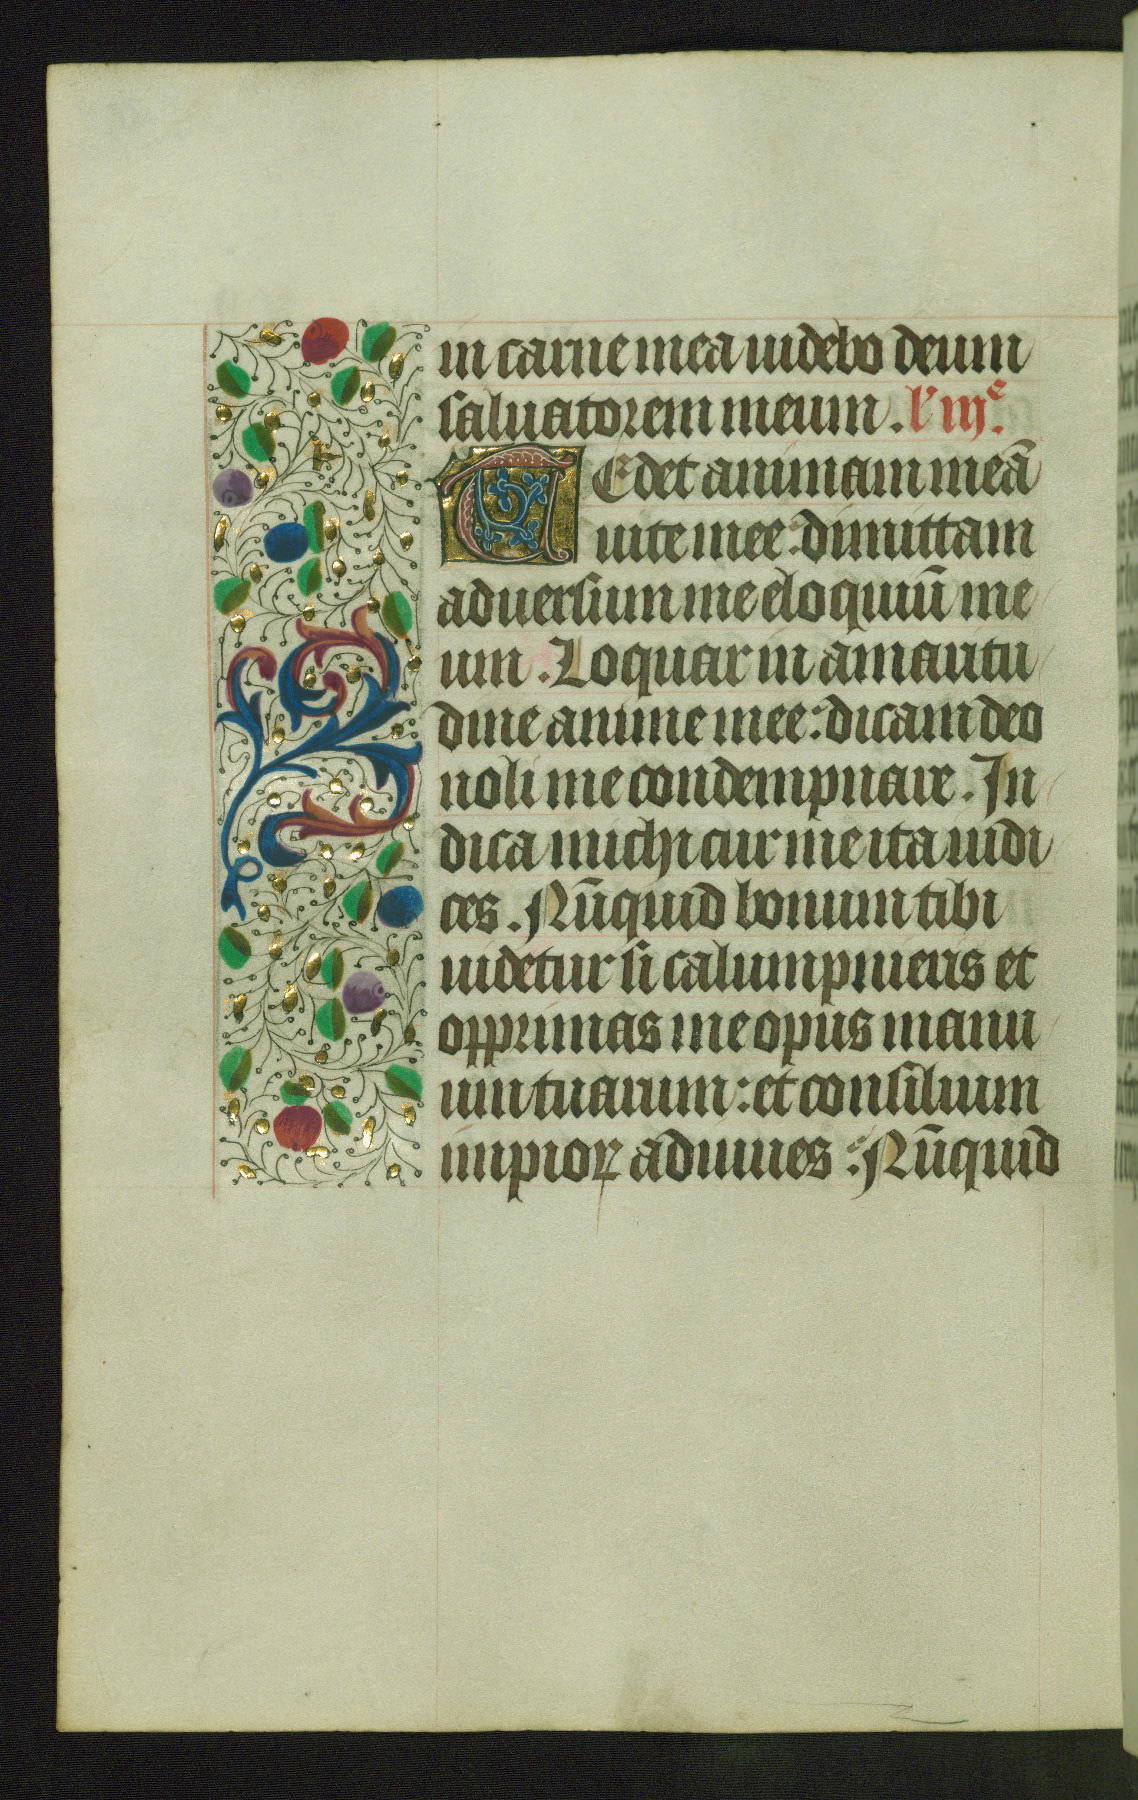 in carne mea uidebo deum
saluatorem meum. l' iijᵉ.
Tedet animam meā
uite mee: dimittam
aduersum me eloquiū me
um. Loquar in amaritu
dine anime mee: dicam deo
noli me condempnare. In
dica michi cur me ita iudi
ces. Nūquid bonum tibi
uidetur si calumpnieris et
opprimas me opus manu
um tuarum: et consilium
impioꝝ adiuues: Nūquid